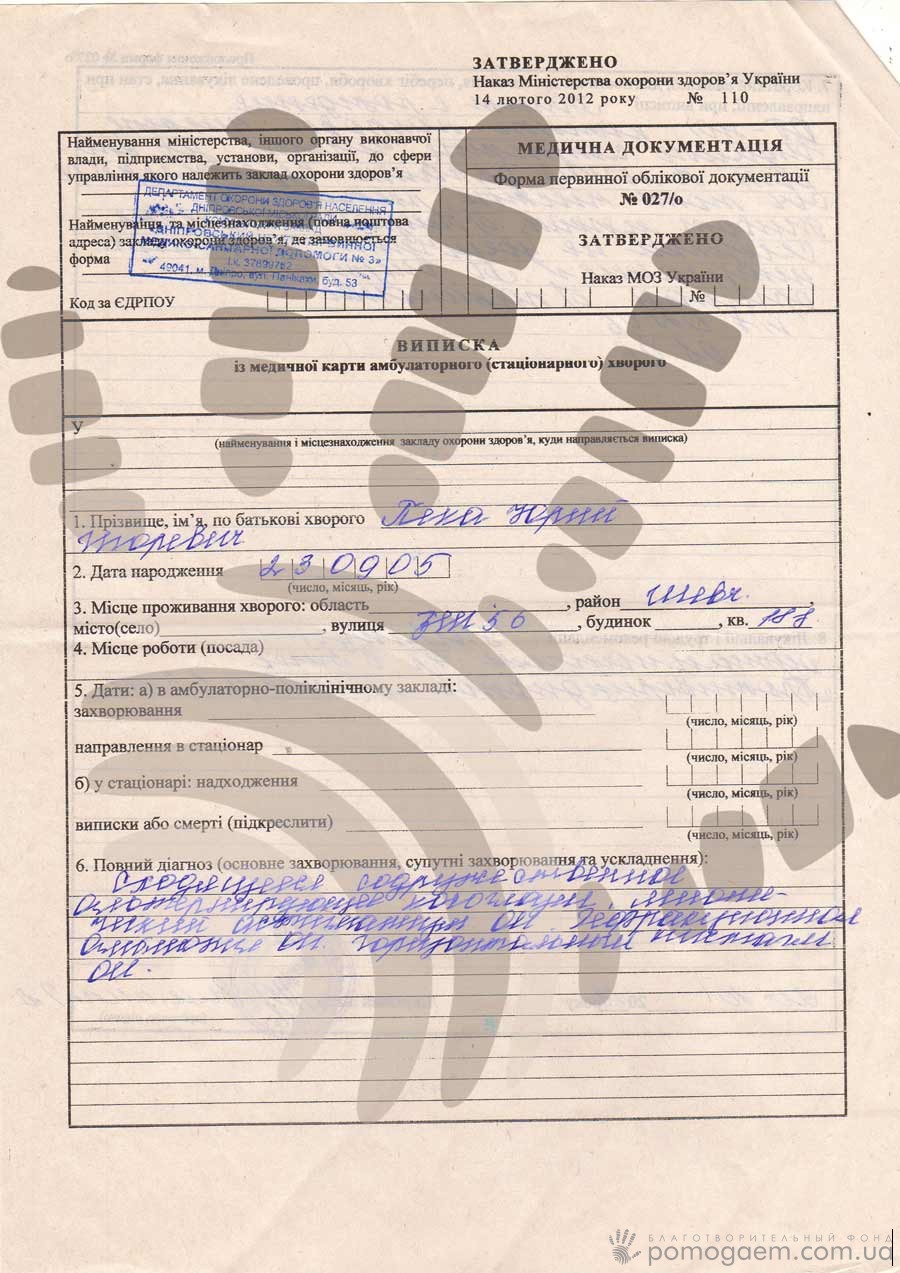 ЗАТВЕРДЖЕНО
Наказ Міністерства охорони здоров'я України
14 лютого 2012 року № 110
Найменування міністерства, іншого органу виконавчої
влади, підприємства, установи, організації, до сфери
управління якого належить заклад охорони здоров'я
ДЕПАРТАМЕНТ ОХОРОНИ ЗДОРОВ'Я НАСЕЛЕННЯ
ДНІПРОВСЬКОЇ МІСЬКОЇ РАДИ
Найменування та місцезнаходження (повна поштова
адреса) закладу охорони здоров'я, де заповнюється
форма
МЕДИКО-САНІТАРНОЇ ДОПОМОГИ № 3»
і.к. 37899762
49041, м. Дніпро, вул. Панікахи, буд. 53
Код за ЄДРПОУ
МЕДИЧНА ДОКУМЕНТАЦІЯ
Форма первинної облікової документації
№ 027/о
ЗАТВЕРДЖЕНО
Наказ МОЗ України
№
ВИПИСКА
із медичної карти амбулаторного (стаціонарного) хворого
У
(найменування і місцезнаходження закладу охорони здоров'я, куди направляється виписка)
1. Прізвище, ім'я, по батькові хворого Пека Юрий
Игоревич
2. Дата народження 230905
(число, місяць, рік)
3. Місце проживання хворого: область, район Шевч.,
місто(село), вулиця, будинок, кв. 187
4. Місце роботи (посада)
5. Дати: а) в амбулаторно-поліклінічному закладі:
захворювання
(число, місяць, рік)
направлення в стаціонар
(число, місяць, рік)
б) у стаціонарі: надходження
(число, місяць, рік)
виписки або смерті (підкреслити)
(число, місяць, рік)
6. Повний діагноз (основне захворювання, супутні захворювання та ускладнення):
Сходящееся содружественное
альтернирующее косоглазие,
астигматизм ои. Рефракционная
амблиопия ои. Горизонтальный нистагм
ои.
БЛАГОТВОРИТЕЛЬНЫЙ ФОНД
pomogaem.com.ua